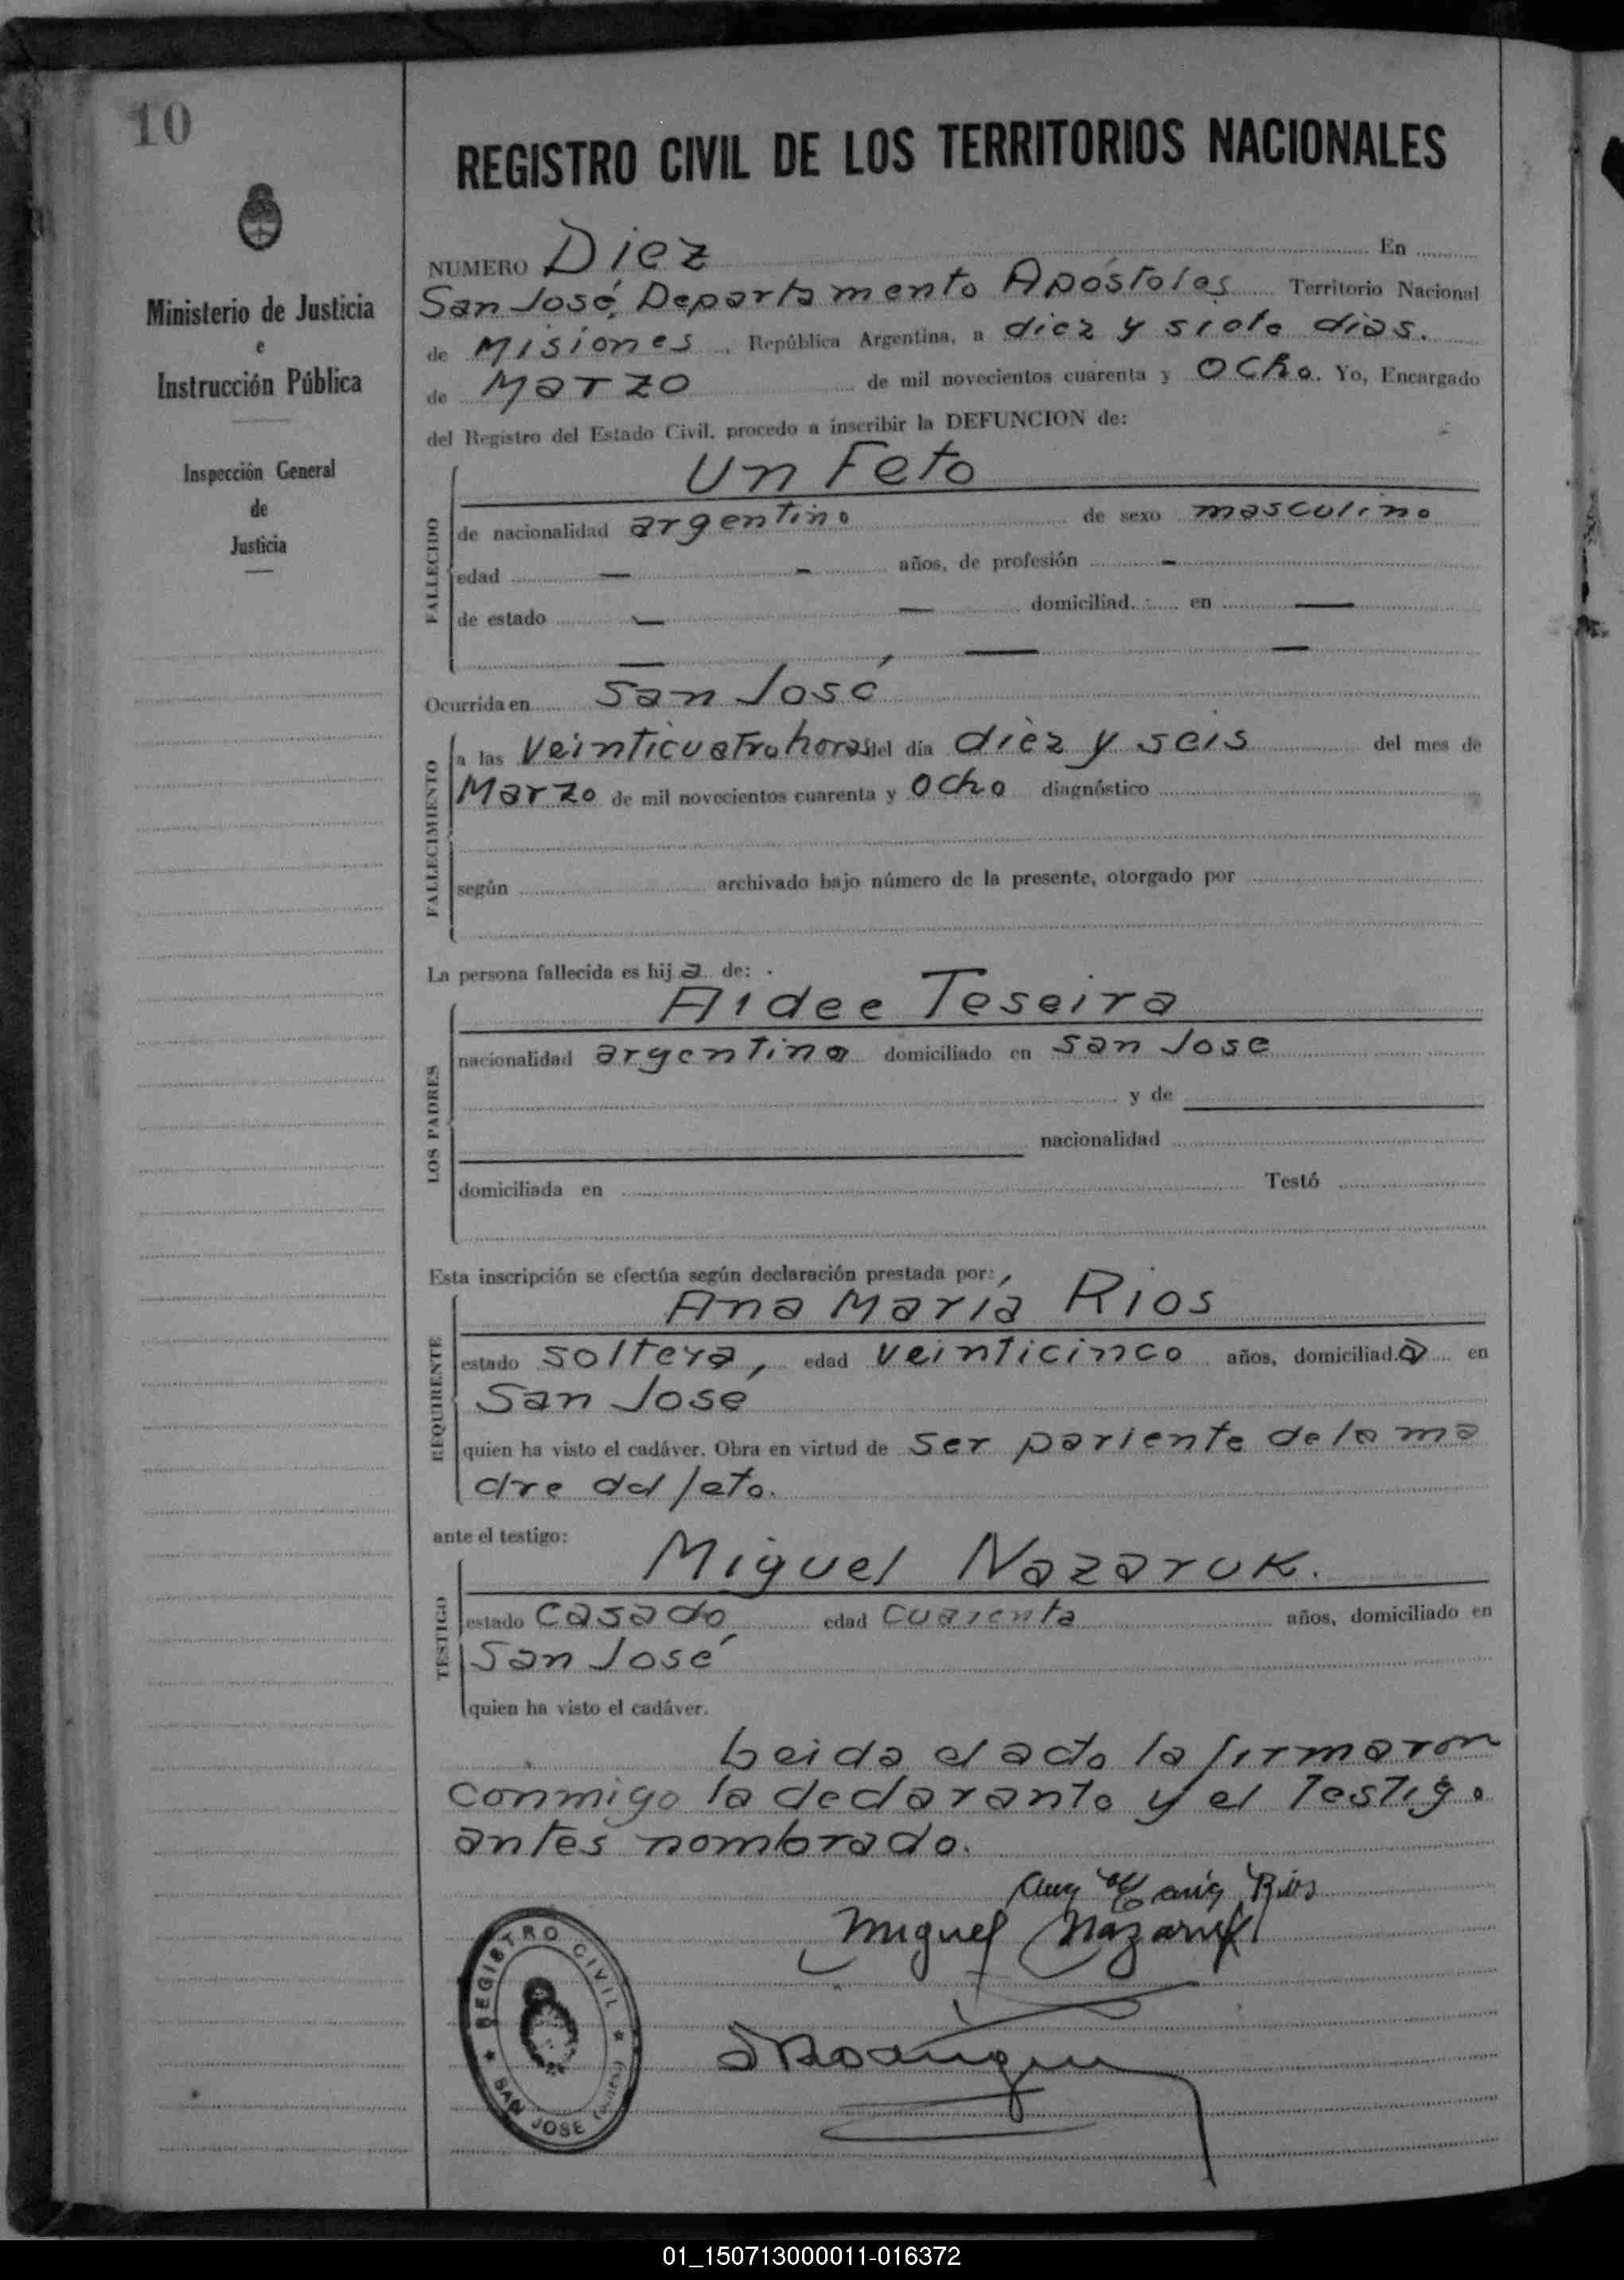 10
Ministerio de Justicia
e
Instrucción Pública
Inspección General
de
Justicia
REGISTRO CIVIL DE LOS TERRITORIOS NACIONALES
NUMERO Diez En
San José, Departamento Apóstoles Territorio Nacional
de Misiones, República Argentina, a diez y siete dias.
de Marzo de mil novecientos cuarenta y ocho. Yo, Encargado
del Registro del Estado Civil, procedo a inscribir la DEFUNCION de:
Un Feto
FALLECIDO
de nacionalidad argentino de sexo masculino
edad — - años, de profesión -
de estado — — domiciliad en —
— — —
Ocurrida en San José
FALLECIMIENTO
a las Veinticuatro horas del día diez y seis del mes de
Marzo de mil novecientos cuarenta y ocho diagnóstico
según archivado bajo número de la presente, otorgado por
La persona fallecida es hij a de:
Aidee Teseira
LOS PADRES
nacionalidad argentina domiciliado en San Jose
y de
nacionalidad
domiciliada en Testó
Esta inscripción se efectúa según declaración prestada por:
Ana María Rios
REQUIRENTE
estado soltera, edad veinticinco años, domiciliad a en
San José
quien ha visto el cadáver. Obra en virtud de ser pariente de la ma
dre del feto.
ante el testigo:
Miguel Nazaruk.
TESTIGO
estado casado edad cuarenta años, domiciliado en
San José
quien ha visto el cadáver.
Leida el acta la firmaron
conmigo la declarante y el testigo
antes nombrado.
Ana María Rios
Miguel Nazaruk
REGISTRO CIVIL
SAN JOSE
01_150713000011-016372